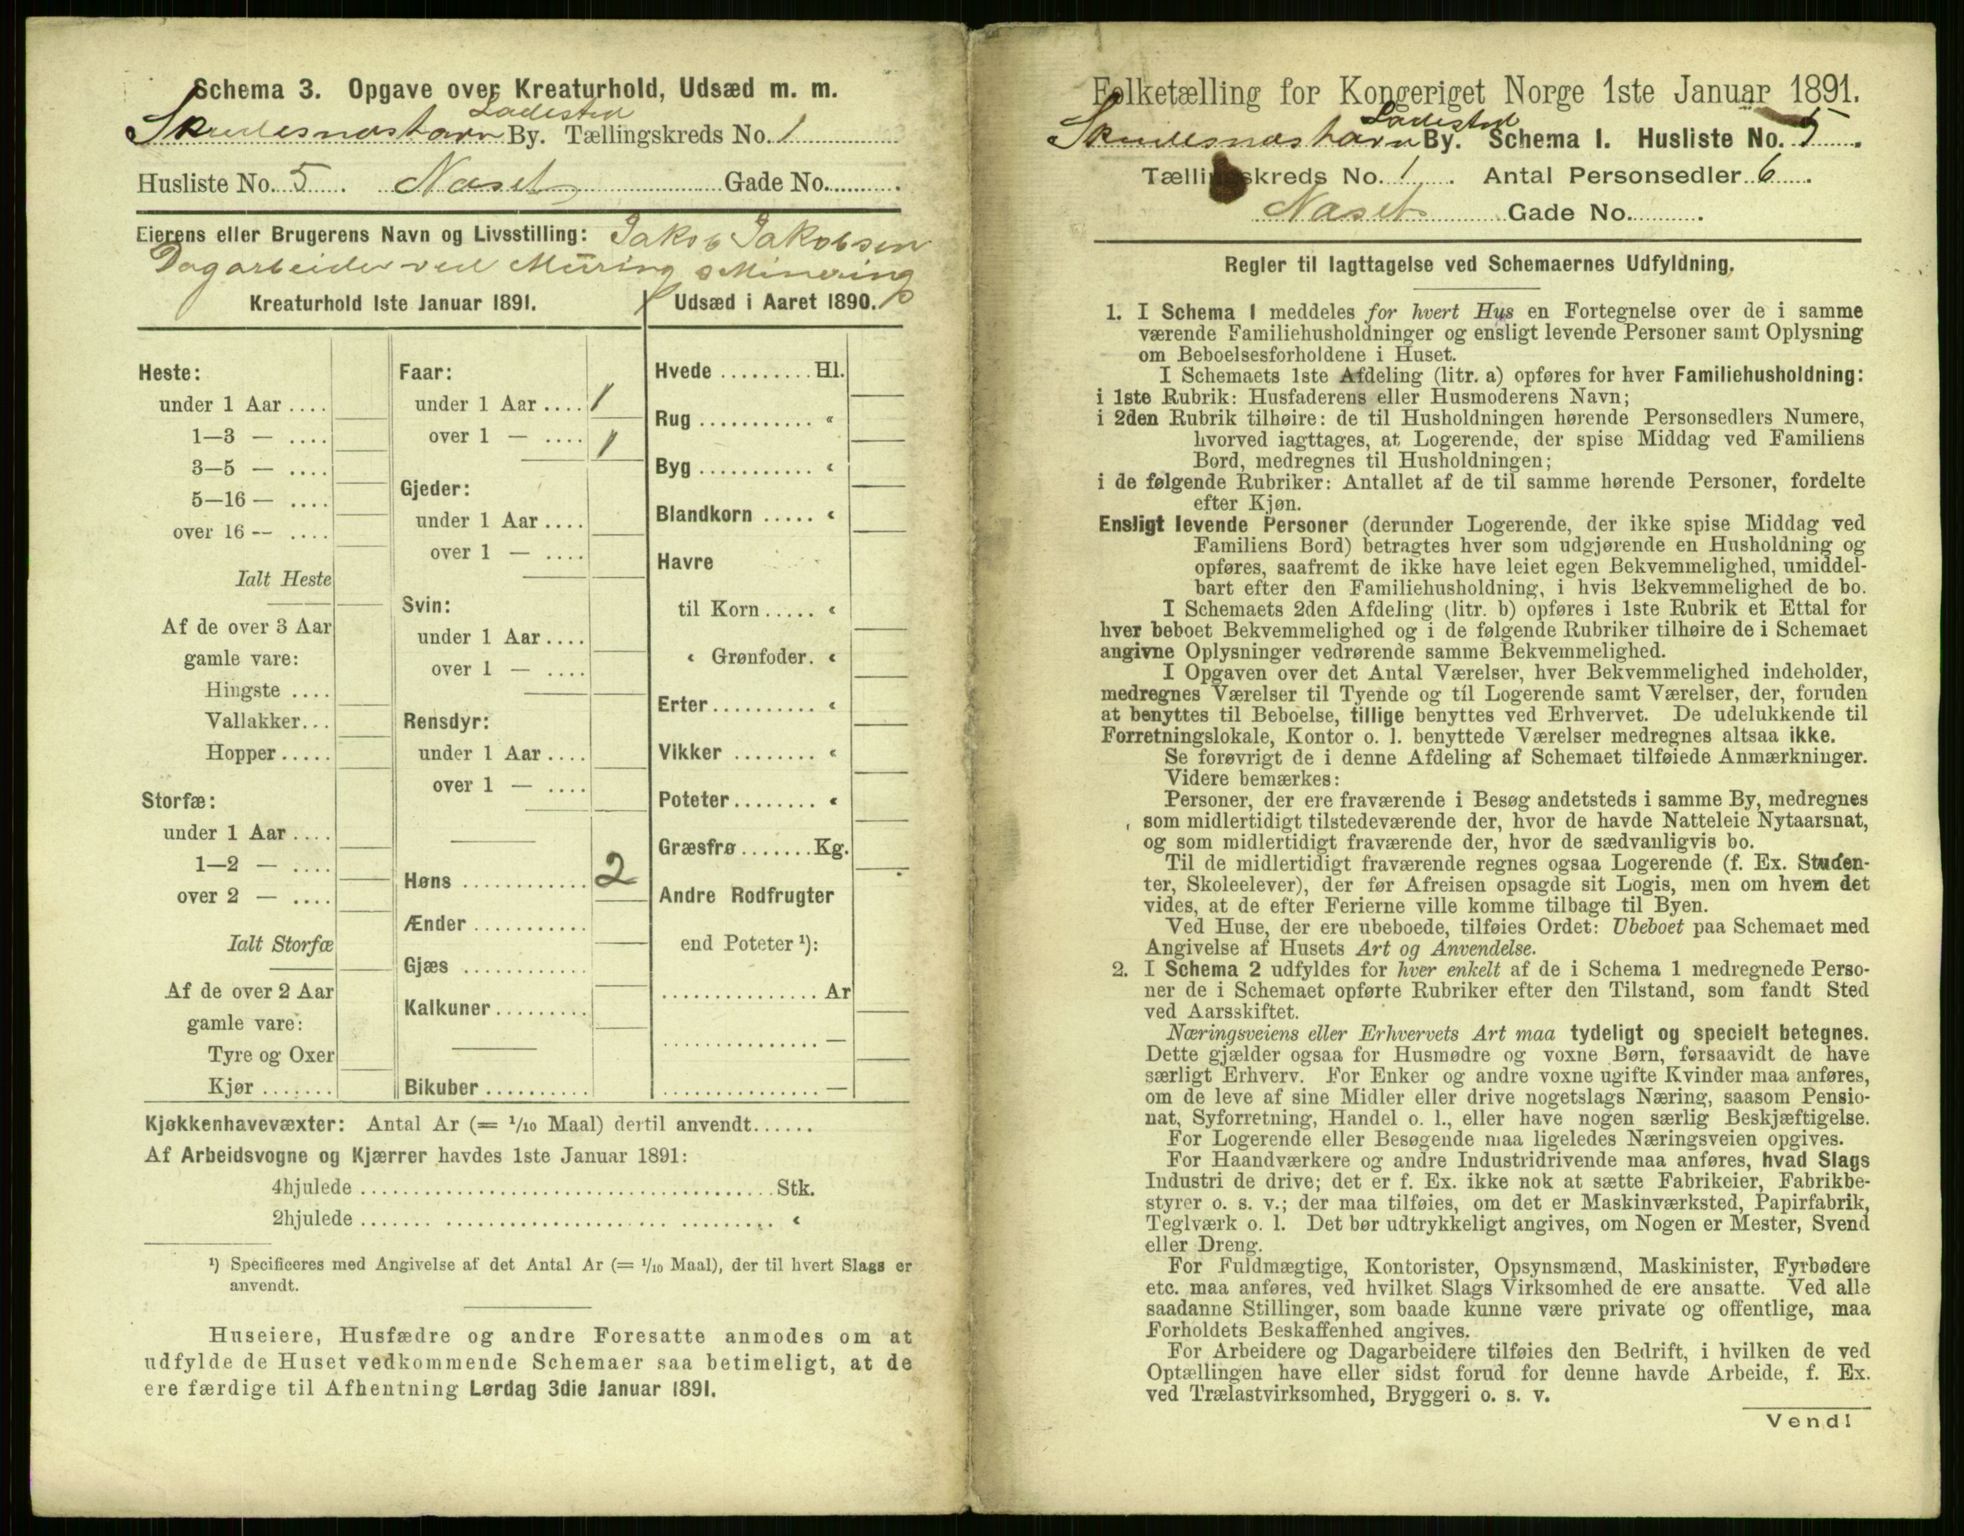 Schema 3. Opgave over Kreaturhold, Udsæd m. m.
Ladested
Skudesnæshavn By. Tællingskreds No. 1
Husliste No. 5. Næset Gade No.
Eierens eller Brugerens Navn og Livsstilling: Jakob Jakobsen
Dagarbeider ved Muring & Minering
Kreaturhold 1ste Januar 1891.
Heste:
under 1 Aar ....
1—3 — ....
3—5 — ....
5—16 — ....
over 16 — ....
Ialt Heste
Af de over 3 Aar
gamle vare:
Hingste ....
Vallakker...
Hopper.....
Storfæ:
under 1 Aar ....
1—2 — ....
over 2 — ....
Ialt Storfæ
Af de over 2 Aar
gamle vare:
Tyre og Oxer
Kjør .......
Faar:
under 1 Aar .... 1
over 1 — .... 1
Gjeder:
under 1 Aar ....
over 1 — ....
Svin:
under 1 Aar ....
over 1 — ....
Rensdyr:
under 1 Aar ....
over 1 — ....
Høns ............ 2
Ænder ...........
Gjæs ............
Kalkuner.........
Bikuber ..........
Udsæd i Aaret 1890.
Hvede ......... Hl.
Rug ........... «
Byg ........... «
Blandkorn ..... «
Havre
til Korn ..... «
« Grønfoder. «
Erter.......... «
Vikker ........ «
Poteter........ «
Græsfrø ....... Kg.
Andre Rodfrugter
end Poteter ¹):
............... Ar
............... —
............... —
Kjøkkenhavevæxter: Antal Ar (= 1/10 Maal) dertil anvendt......
Af Arbeidsvogne og Kjærrer havdes 1ste Januar 1891:
4hjulede ...................................... Stk.
2hjulede ...................................... «
¹) Specificeres med Angivelse af det Antal Ar (= 1/10 Maal), der til hvert Slags er
anvendt.
Huseiere, Husfædre og andre Foresatte anmodes om at
udfylde de Huset vedkommende Schemaer saa betimeligt, at de
ere færdige til Afhentning Lørdag 3die Januar 1891.
Folketælling for Kongeriget Norge 1ste Januar 1891.
Ladested
Skudesnæshavn By. Schema I. Husliste No. 5.
Tællingskreds No. 1. Antal Personsedler 6.
Næset Gade No.
Regler til Iagttagelse ved Schemaernes Udfyldning.
1. I Schema I meddeles for hvert Hus en Fortegnelse over de i samme
værende Familiehusholdninger og ensligt levende Personer samt Oplysning
om Beboelsesforholdene i Huset.
I Schemaets 1ste Afdeling (litr. a) opføres for hver Familiehusholdning:
i 1ste Rubrik: Husfaderens eller Husmoderens Navn;
i 2den Rubrik tilhøire: de til Husholdningen hørende Personsedlers Numere,
hvorved iagttages, at Logerende, der spise Middag ved Familiens
Bord, medregnes til Husholdningen;
i de følgende Rubriker: Antallet af de til samme hørende Personer, fordelte
efter Kjøn.
Ensligt levende Personer (derunder Logerende, der ikke spise Middag ved
Familiens Bord) betragtes hver som udgjørende en Husholdning og
opføres, saafremt de ikke have leiet egen Bekvemmelighed, umiddel-
bart efter den Familiehusholdning, i hvis Bekvemmelighed de bo.
I Schemaets 2den Afdeling (litr. b) opføres i 1ste Rubrik et Ettal for
hver beboet Bekvemmelighed og i de følgende Rubriker tilhøire de i Schemaet
angivne Oplysninger vedrørende samme Bekvemmelighed.
I Opgaven over det Antal Værelser, hver Bekvemmelighed indeholder,
medregnes Værelser til Tyende og til Logerende samt Værelser, der, foruden
at benyttes til Beboelse, tillige benyttes ved Erhvervet. De udelukkende til
Forretningslokale, Kontor o. l. benyttede Værelser medregnes altsaa ikke.
Se forøvrigt de i denne Afdeling af Schemaet tilføiede Anmærkninger.
Videre bemærkes:
Personer, der ere fraværende i Besøg andetsteds i samme By, medregnes
som midlertidigt tilstedeværende der, hvor de havde Natteleie Nytaarsnat,
og som midlertidigt fraværende der, hvor de sædvanligvis bo.
Til de midlertidigt fraværende regnes ogsaa Logerende (f. Ex. Studen-
ter, Skoleelever), der før Afreisen opsagde sit Logis, men om hvem det
vides, at de efter Ferierne ville komme tilbage til Byen.
Ved Huse, der ere ubeboede, tilføies Ordet: Ubeboet paa Schemaet med
Angivelse af Husets Art og Anvendelse.
2. I Schema 2 udfyldes for hver enkelt af de i Schema 1 medregnede Perso-
ner de i Schemaet opførte Rubriker efter den Tilstand, som fandt Sted
ved Aarsskiftet.
Næringsveiens eller Erhvervets Art maa tydeligt og specielt betegnes.
Dette gjælder ogsaa for Husmødre og voxne Børn, forsaavidt de have
særligt Erhverv. For Enker og andre voxne ugifte Kvinder maa anføres,
om de leve af sine Midler eller drive nogetslags Næring, saasom Pensio-
nat, Syforretning, Handel o. l., eller have nogen særlig Beskjæftigelse.
For Logerende eller Besøgende maa ligeledes Næringsveien opgives.
For Haandværkere og andre Industridrivende maa anføres, hvad Slags
Industri de drive; det er f. Ex. ikke nok at sætte Fabrikeier, Fabrikbe-
styrer o. s. v.; der maa tilføies, om det er Maskinværksted, Papirfabrik,
Teglværk o. l. Det bør udtrykkeligt angives, om Nogen er Mester, Svend
eller Dreng.
For Fuldmægtige, Kontorister, Opsynsmænd, Maskinister, Fyrbødere
etc. maa anføres, ved hvilket Slags Virksomhed de ere ansatte. Ved alle
saadanne Stillinger, som baade kunne være private og offentlige, maa
Forholdets Beskaffenhed angives.
For Arbeidere og Dagarbeidere tilføies den Bedrift, i hvilken de ved
Optællingen have eller sidst forud for denne havde Arbeide, f. Ex.
ved Trælastvirksomhed, Bryggeri o. s. v.
Vend!